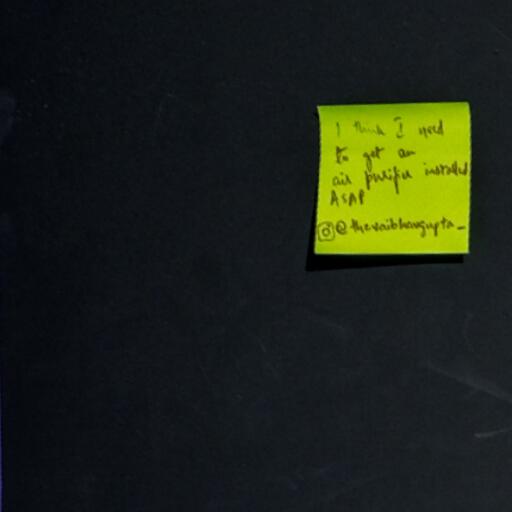 I think I need
to get an
air purifier installed
ASAP
@thevaibhavgupta_